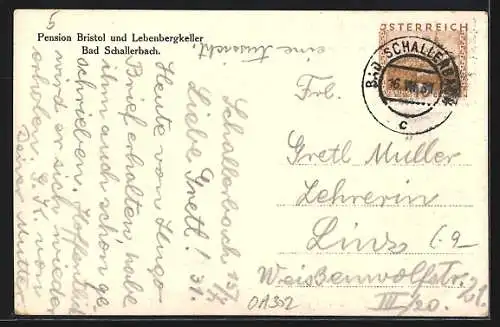 Pension Bristol und Lebenbergkeller
Bad Schallerbach.
eine Ansicht.
Schallerbach 15/7
31.
Liebe Gretl!
Heute von Hugo
Brief erhalten, habe
ihm auch schon ge-
schrieben. Hoffentlich
wird er sich wieder
erholen. G. K. von
Deiner Mutter
ÖSTERREICH
BAD SCHALLERBACH
16. VII 31
c
Frl.
Gretl Müller
Lehrerin
Linz
Weißenwolfstr.
III/20.